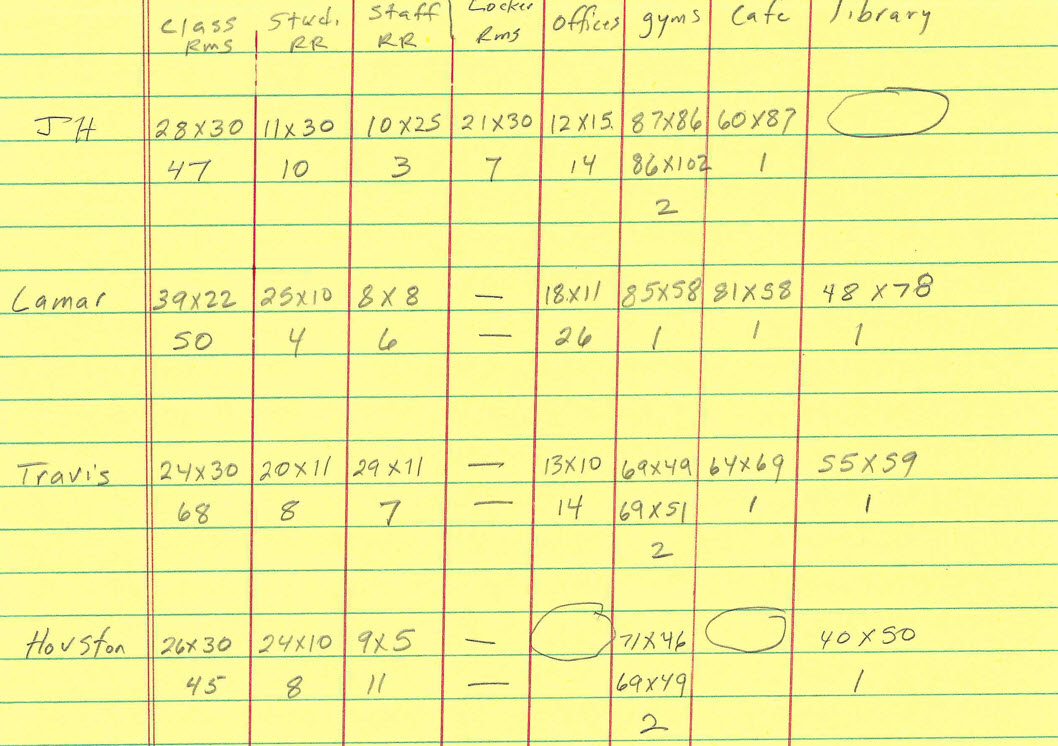 Class Stud. Staff Locker Offices gyms Cafe library
Rms RR RR Rms
JH 28X30 11X30 10X25 21X30 12X15. 87X86 60X87
47 10 3 7 14 86X102 1
2
Lamar 39X22 25X10 8X8 — 18X11 85X58 81X58 48X78
50 4 6 — 26 1 1 1
Travis 24X30 20X11 29X11 — 13X10 69X49 64X69 55X59
68 8 7 — 14 69X51 1 1
2
Houston 26X30 24X10 9X5 — 71X46 40X50
45 8 11 — 69X49 1
2